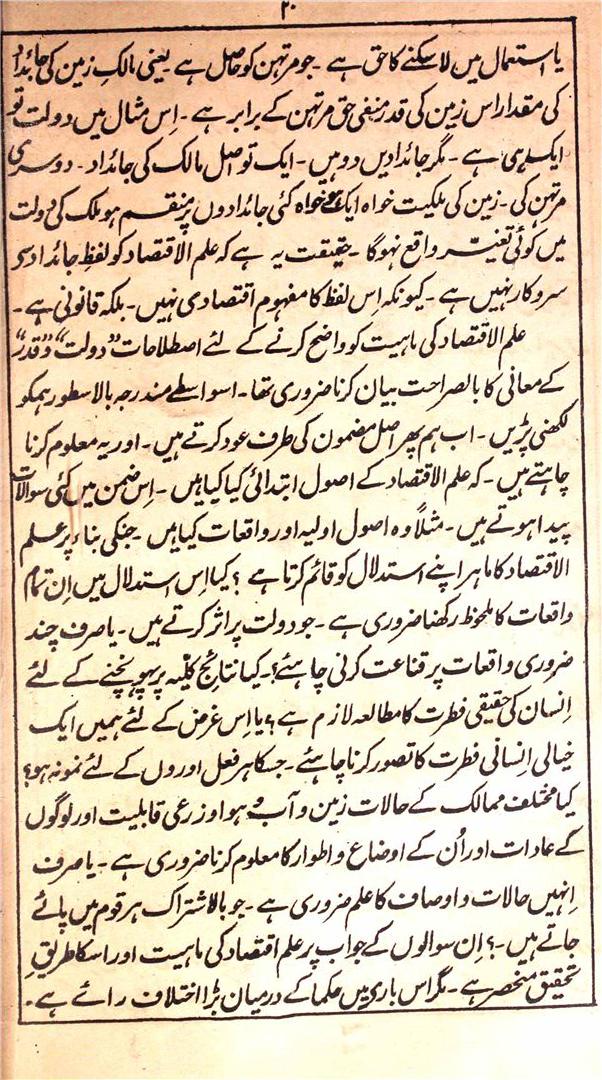 ۲۰
یا استعمال میں لا سکنے کا حق ہے ۔ جو مرتہن کو حاصل ہے ۔ یعنی مالکِ زمین کی جائداد
کی مقدار اس زمین کی قدر منفی حق مرتہن کے برابر ہے ۔ اِس مثال میں دولت تو
ایک ہی ہے ۔ مگر جائدادیں دو ہیں ۔ ایک تو اصل مالک کی جائداد ۔ دوسری
مرتہن کی ۔ زمین کی ملکیت خواہ ایک ہو خواہ کئی جائدادوں پر منقسم ہو ملک کی دولت
میں کوئی تغیّر واقع نہوگا ۔ حقیقت یہ ہے کہ علم الاقتصاد کو لفظِ جائداد سے
سروکار نہیں ہے ۔ کیونکہ اِس لفظ کا مفہوم اقتصادی نہیں ۔ بلکہ قانونی ہے ۔
علم الاقتصاد کی ماہیت کو واضح کرنے کے لئے اصطلاحات "دولت" و "قدر"
کے معانی کا بالصراحت بیان کرنا ضروری تھا ۔ اسواسطے مندرجہ بالا سطور ہمکو
لکھنی پڑیں ۔ اب ہم پھر اصل مضمون کی طرف عود کرتے ہیں ۔ اور یہ معلوم کرنا
چاہتے ہیں ۔ کہ علم الاقتصاد کے اصول ابتدائی کیا کیا ہیں ۔ اِس ضمن میں کئی سوالات
پیدا ہوتے ہیں ۔ مثلاً وہ اصول اولیہ اور واقعات کیا ہیں ۔ جنکی بناء پر علم
الاقتصاد کا ماہر اپنے استدلال کو قائم کرتا ہے ؟ کیا اِس استدلال میں اِن تمام
واقعات کا ملحوظ رکھنا ضروری ہے ۔ جو دولت پر اثر کرتے ہیں ۔ یا صرف چند
ضروری واقعات پر قناعت کرنی چاہئے ؟ ۔ کیا نتائج کلّیہ پر پہونچنے کے لئے
اِنسان کی حقیقی فطرت کا مطالعہ لازم ہے ؟ یا اِس غرض کے لئے ہمیں ایک
خیالی اِنسانی فطرت کا تصور کرنا چاہئے ۔ جسکا ہر فعل اوروں کے لئے نمونہ ہو ؟
کیا مختلف ممالک کے حالات زمین و آب و ہوا و زرعی قابلیت اور لوگوں
کے عادات اور اُن کے اوضاع و اطوار کا معلوم کرنا ضروری ہے ۔ یا صرف
اِنہیں حالات و اوصاف کا علم ضروری ہے ۔ جو بالاشتراک ہر قوم میں پائے
جاتے ہیں ۔ ؟ اِن سوالوں کے جواب پر علم اقتصاد کی ماہیت اور اسکا طریقِ
تحقیق منحصر ہے ۔ مگر اس بارے میں حکما کے درمیان بڑا اختلاف رائے ہے ۔